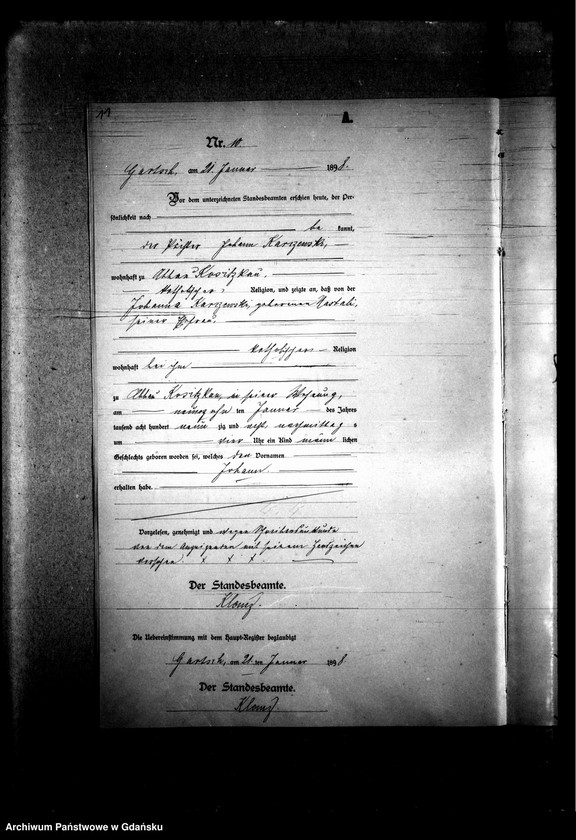 11
A.
Nr. 10
Gartsch, am 21. Januar 1898.
Vor dem unterzeichneten Standesbeamten erschien heute, der Per-
sönlichkeit nach
be kannt,
der Pächter Johann Karczewski,
wohnhaft zu Abbau Kositzkau,
katholischer Religion, und zeigte an, daß von der
Johanna Karczewski, geborenen
seiner Ehefrau,
katholischer Religion
wohnhaft bei ihm
zu Abbau Kositzkau, in seiner Wohnung,
am neunzehn ten Januar des Jahres
tausend acht hundert neun zig und acht, nachmittags
um vier Uhr ein Kind männ lichen
Geschlechts geboren worden sei, welches den Vornamen
Johann
erhalten habe.
Vorgelesen, genehmigt und wegen Schreibensunkunde
von dem Anzeigenden mit seinem Handzeichen
versehen. x x x
Der Standesbeamte.
Die Uebereinstimmung mit dem Haupt-Register beglaubigt
Gartsch, am 21. ten Januar 1898.
Der Standesbeamte.
Archiwum Państwowe w Gdańsku